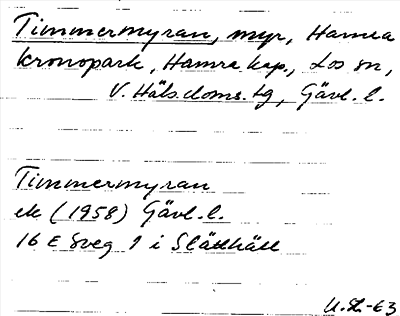 Timmermyran, myr, Hamra
kronopark, Hamra kap., Los sn,
V. Häls. doms. tg, Gävl. l.
Timmermyran
ek (1958) Gävl. l.
16 E Sveg 1 i Slätthäll
U.L.-63